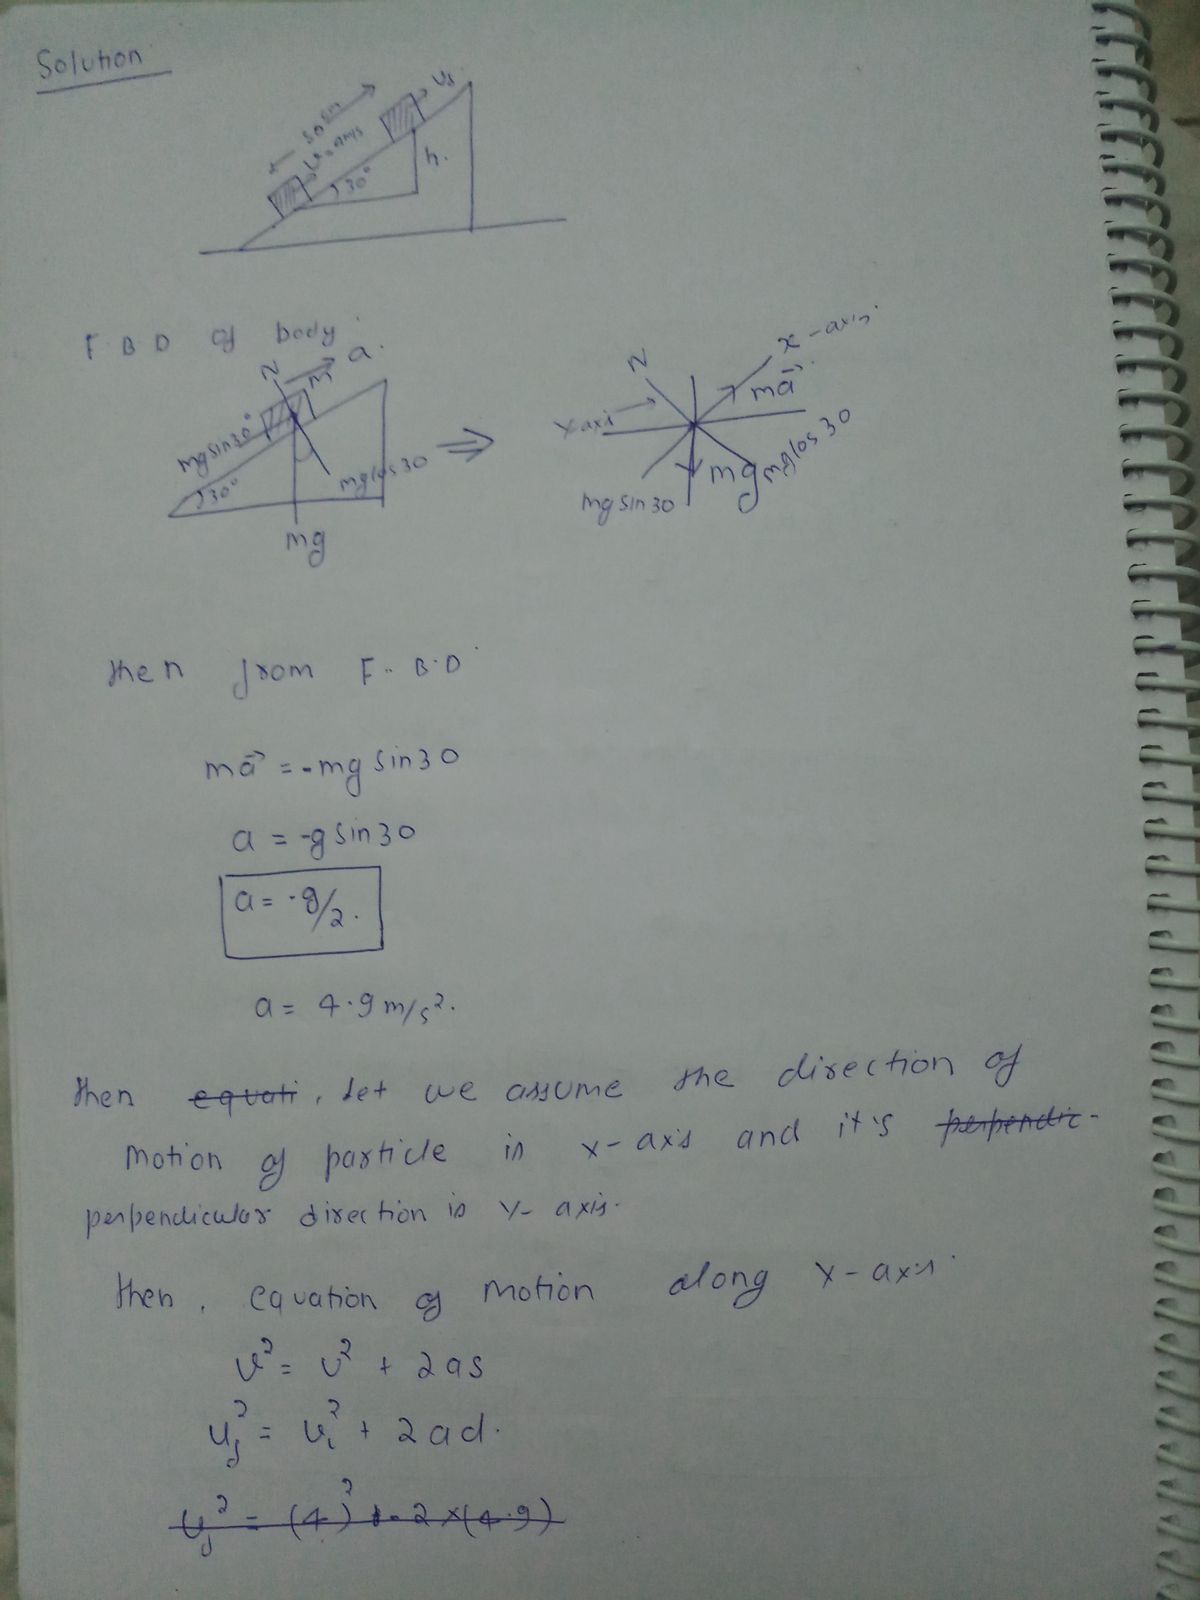 Solution
30°
h.
F B D of body
N
a.
m
mg sin 30°
30°
mg cos 30
mg
N
x-axis.
ma⃗
Y axis
mg
mg cos 30
mg sin 30
then from F.B.D.
ma⃗ = -mg sin 30
a = -g sin 30
a = -g/2.
a = 4.9 m/s².
then equati, let we assume the direction of
motion of particle is x-axis and it's perpendic-
perpendicular direction is Y-axis.
then, equation of motion along x-axis.
v² = u² + 2as
v_f² = v_i² + 2ad.
v_f² = (4)² - 2×(4.9)